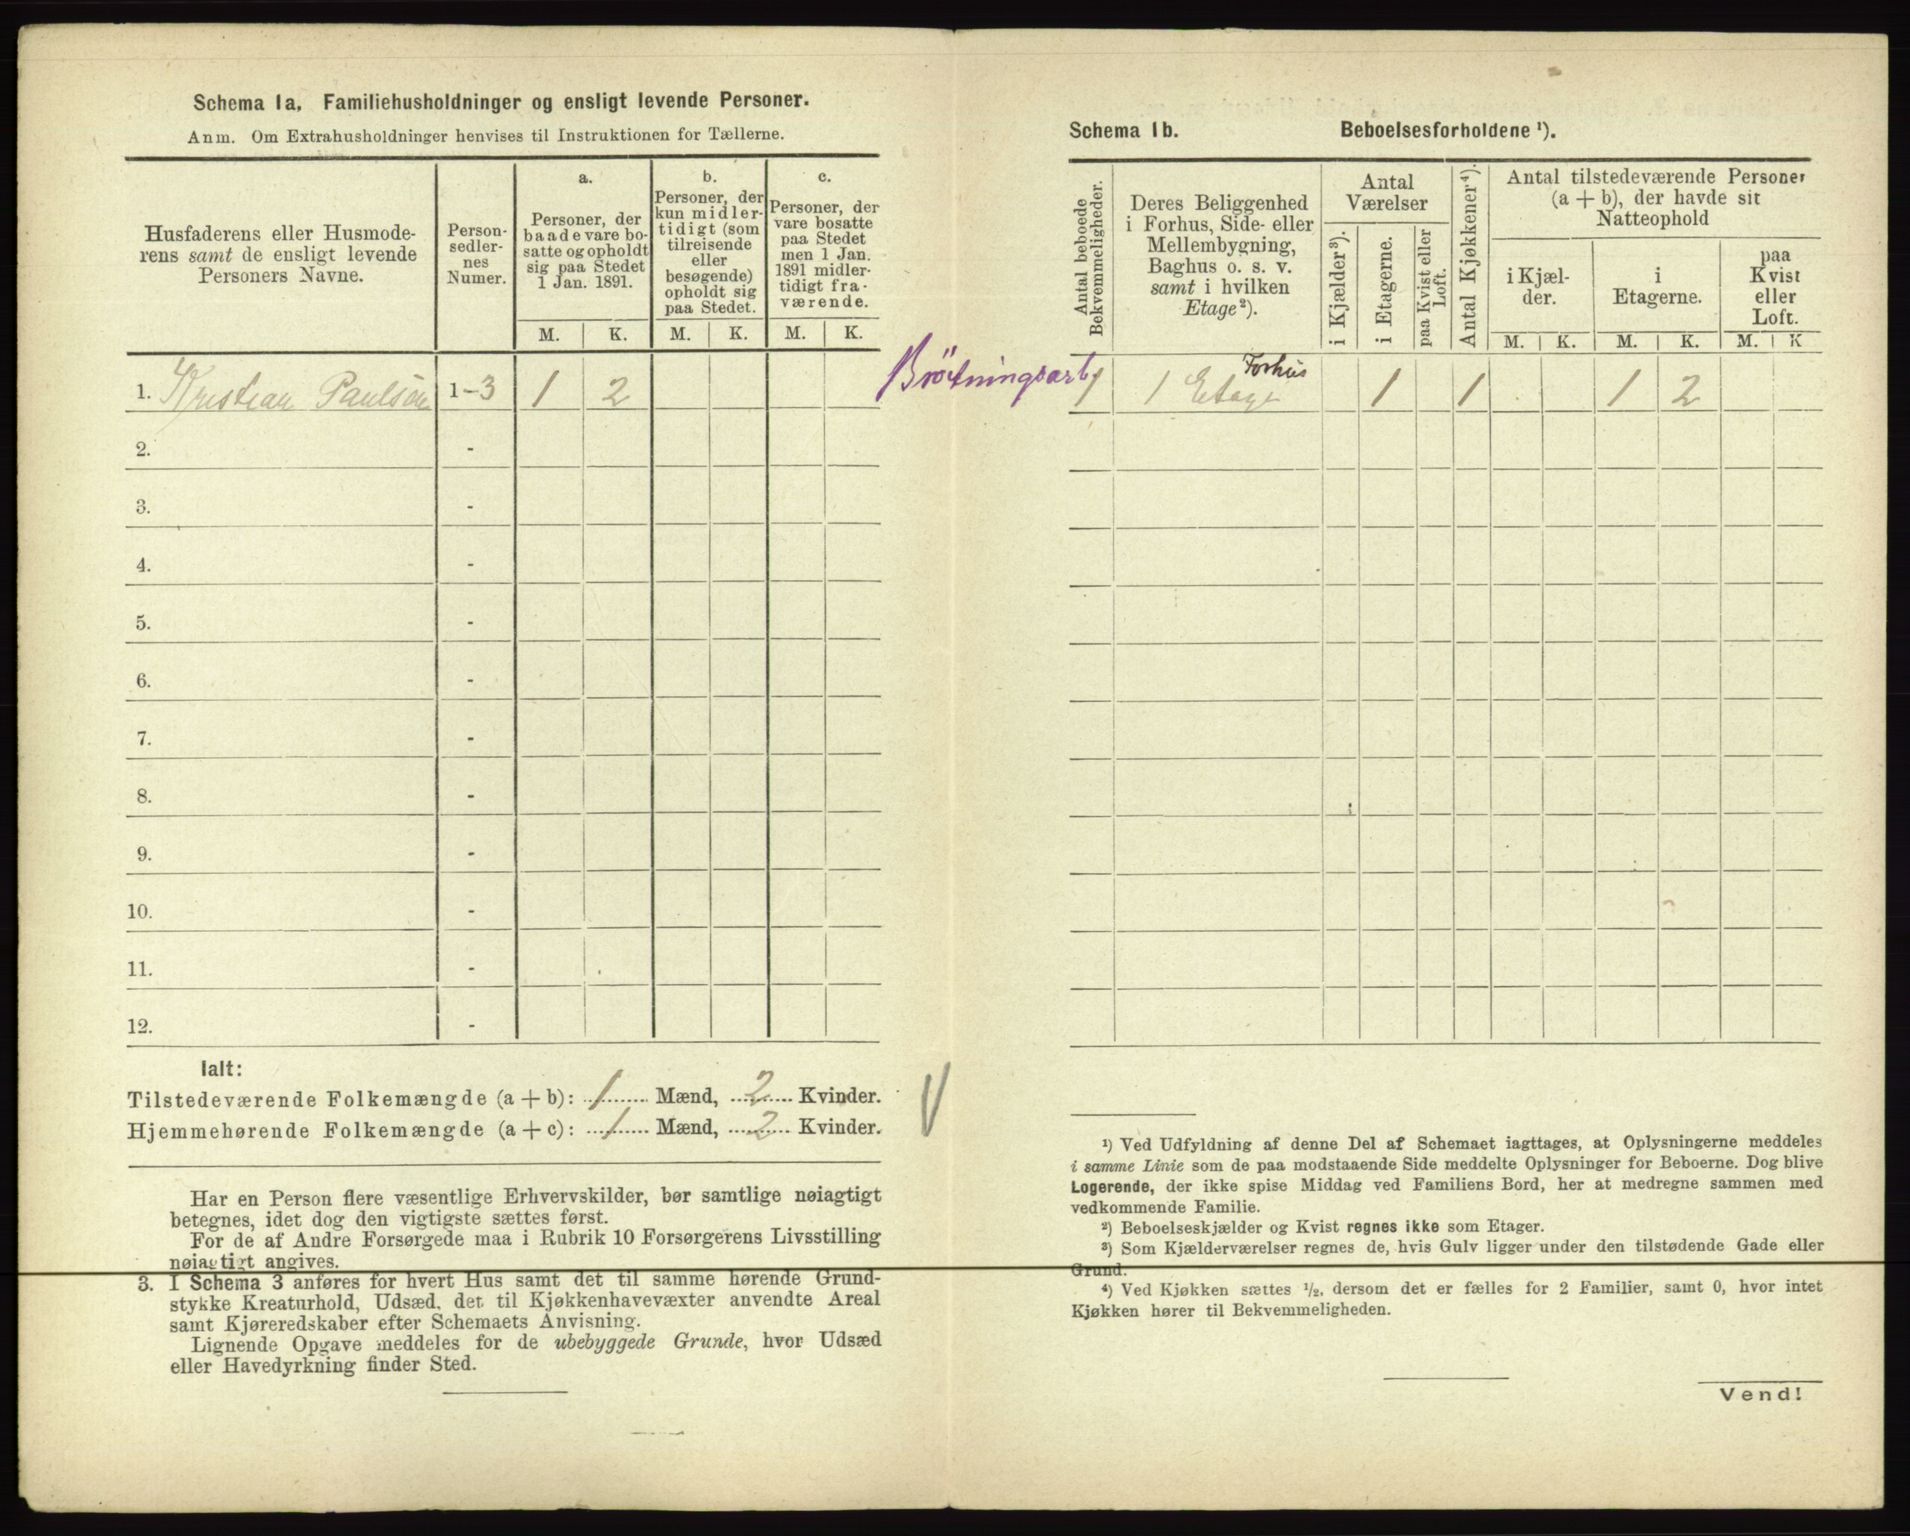 Schema 1a. Familiehusholdninger og ensligt levende Personer.
Anm. Om Extrahusholdninger henvises til Instruktionen for Tællerne.
Husfaderens eller Husmode-
rens samt de ensligt levende
Personers Navne.
Person-
sedler-
nes
Numer.
a.
Personer, der
baade vare bo-
satte og opholdt
sig paa Stedet
1 Jan. 1891.
b.
Personer, der
kun midler-
tidigt (som
tilreisende
eller
besøgende)
opholdt sig
paa Stedet.
c.
Personer, der
vare bosatte
paa Stedet
men 1 Jan.
1891 midler-
tidigt fra-
værende.
M. K. M. K. M. K.
1. Kristian Paulsen 1-3 1 2
2. -
3. -
4. -
5. -
6. -
7. -
8. -
9. -
10. -
11. -
12. -
Ialt:
Tilstedeværende Folkemængde (a + b): 1 Mænd, 2 Kvinder.
Hjemmehørende Folkemængde (a + c): 1 Mænd, 2 Kvinder.
Har en Person flere væsentlige Erhvervskilder, bør samtlige nøiagtigt
betegnes, idet dog den vigtigste sættes først.
For de af Andre Forsørgede maa i Rubrik 10 Forsørgerens Livsstilling
nøiagtigt angives.
3. I Schema 3 anføres for hvert Hus samt det til samme hørende Grund-
stykke Kreaturhold, Udsæd, det til Kjøkkenhavevæxter anvendte Areal
samt Kjøreredskaber efter Schemaets Anvisning.
Lignende Opgave meddeles for de ubebyggede Grunde, hvor Udsæd
eller Havedyrkning finder Sted.
Schema 1b. Beboelsesforholdene ¹).
Antal beboede
Bekvemmeligheder.
Deres Beliggenhed
i Forhus, Side- eller
Mellembygning,
Baghus o. s. v.
samt i hvilken
Etage²).
Antal
Værelser
i Kjælder³).
i Etagerne.
paa Kvist eller
Loft.
Antal Kjøkkener⁴).
Antal tilstedeværende Personer
(a + b), der havde sit
Natteophold
i Kjæl-
der.
i
Etagerne.
paa
Kvist
eller
Loft.
M. K. M. K. M. K
Brötningsarb.
Forhus
1 1 Etage 1 1 1 2
¹) Ved Udfyldning af denne Del af Schemaet iagttages, at Oplysningerne meddeles
i samme Linie som de paa modstaaende Side meddelte Oplysninger for Beboerne. Dog blive
Logerende, der ikke spise Middag ved Familiens Bord, her at medregne sammen med
vedkommende Familie.
²) Beboelseskjælder og Kvist regnes ikke som Etager.
³) Som Kjælderværelser regnes de, hvis Gulv ligger under den tilstødende Gade eller
Grund.
⁴) Ved Kjøkken sættes ½, dersom det er fælles for 2 Familier, samt 0, hvor intet
Kjøkken hører til Bekvemmeligheden.
Vend!